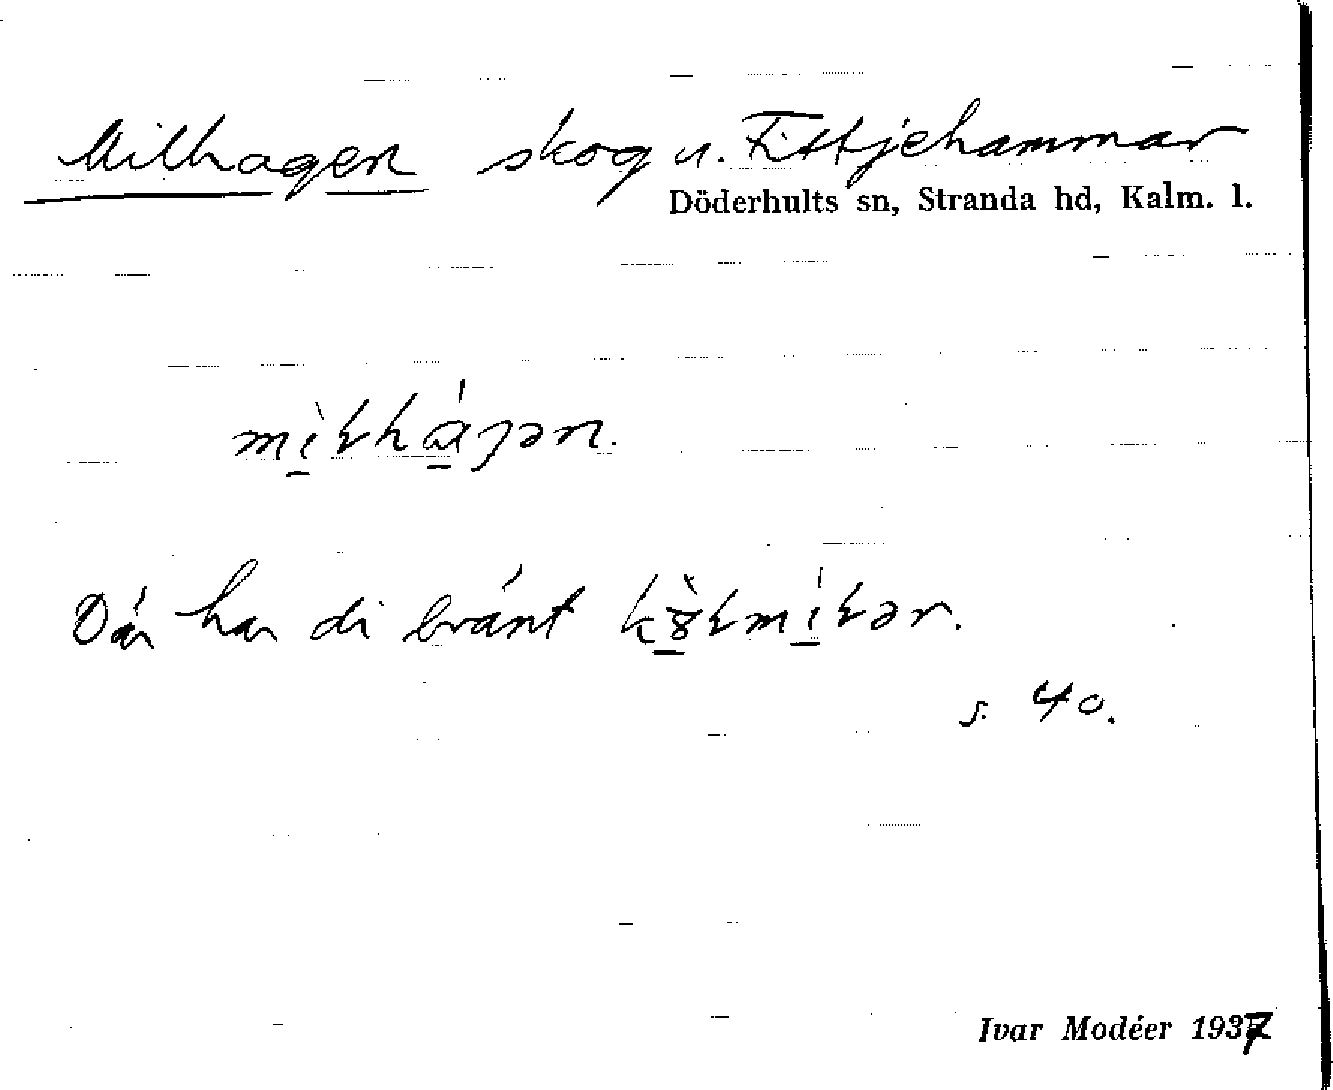 Milhagen skog u. Fittjehammar
Döderhults sn, Stranda hd, Kalm. l.
mìɫháɡən.
Där har di bránt kɷ̀ɫmíɫər.
s. 40.
Ivar Modéer 1937